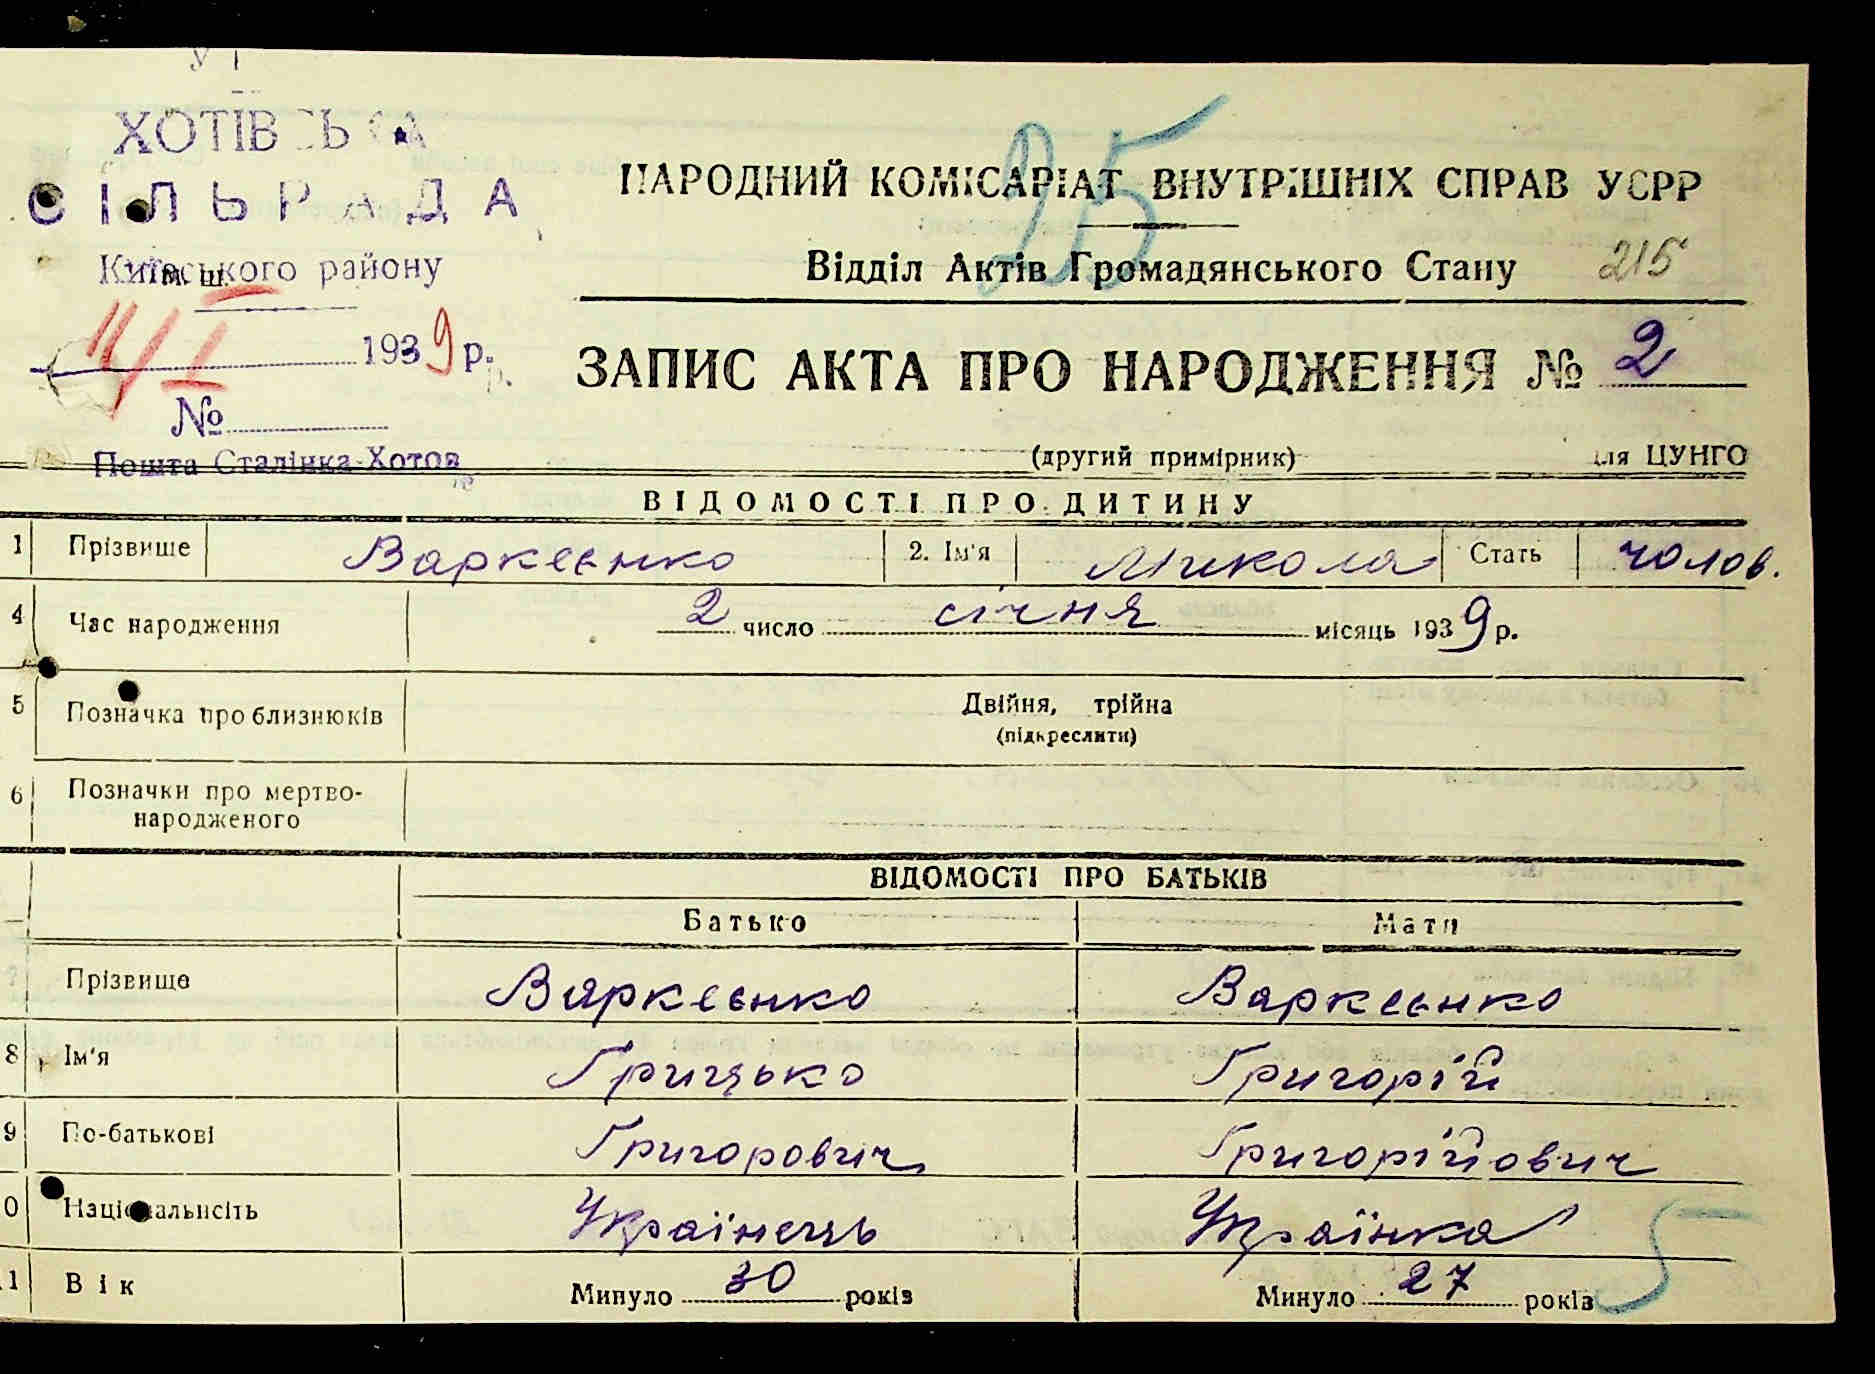 ХОТІВСЬКА
СІЛЬРАДА
Київського району
11/I 1939 р.
№
Пошта Сталінка-Хотов
25
НАРОДНИЙ КОМІСАРІАТ ВНУТРІШНІХ СПРАВ УСРР
Відділ Актів Громадянського Стану 215
ЗАПИС АКТА ПРО НАРОДЖЕННЯ № 2
(другий примірник) для ЦУНГО
ВІДОМОСТІ ПРО ДИТИНУ
1 Прізвище Варкеенко 2. Ім'я Микола Стать чолов.
4 Час народження 2 число січня місяць 1939 р.
5 Позначка про близнюків Двійня, трійна
(підкреслити)
6 Позначки про мертво-
народженого
ВІДОМОСТІ ПРО БАТЬКІВ
Батько Мати
Прізвище Варкеенко Варкеенко
8 Ім'я Грицько Григорій
9 По-батькові Григорович Григорійович
0 Національність Українець Українка
1 Вік Минуло 30 років Минуло 27 років
5